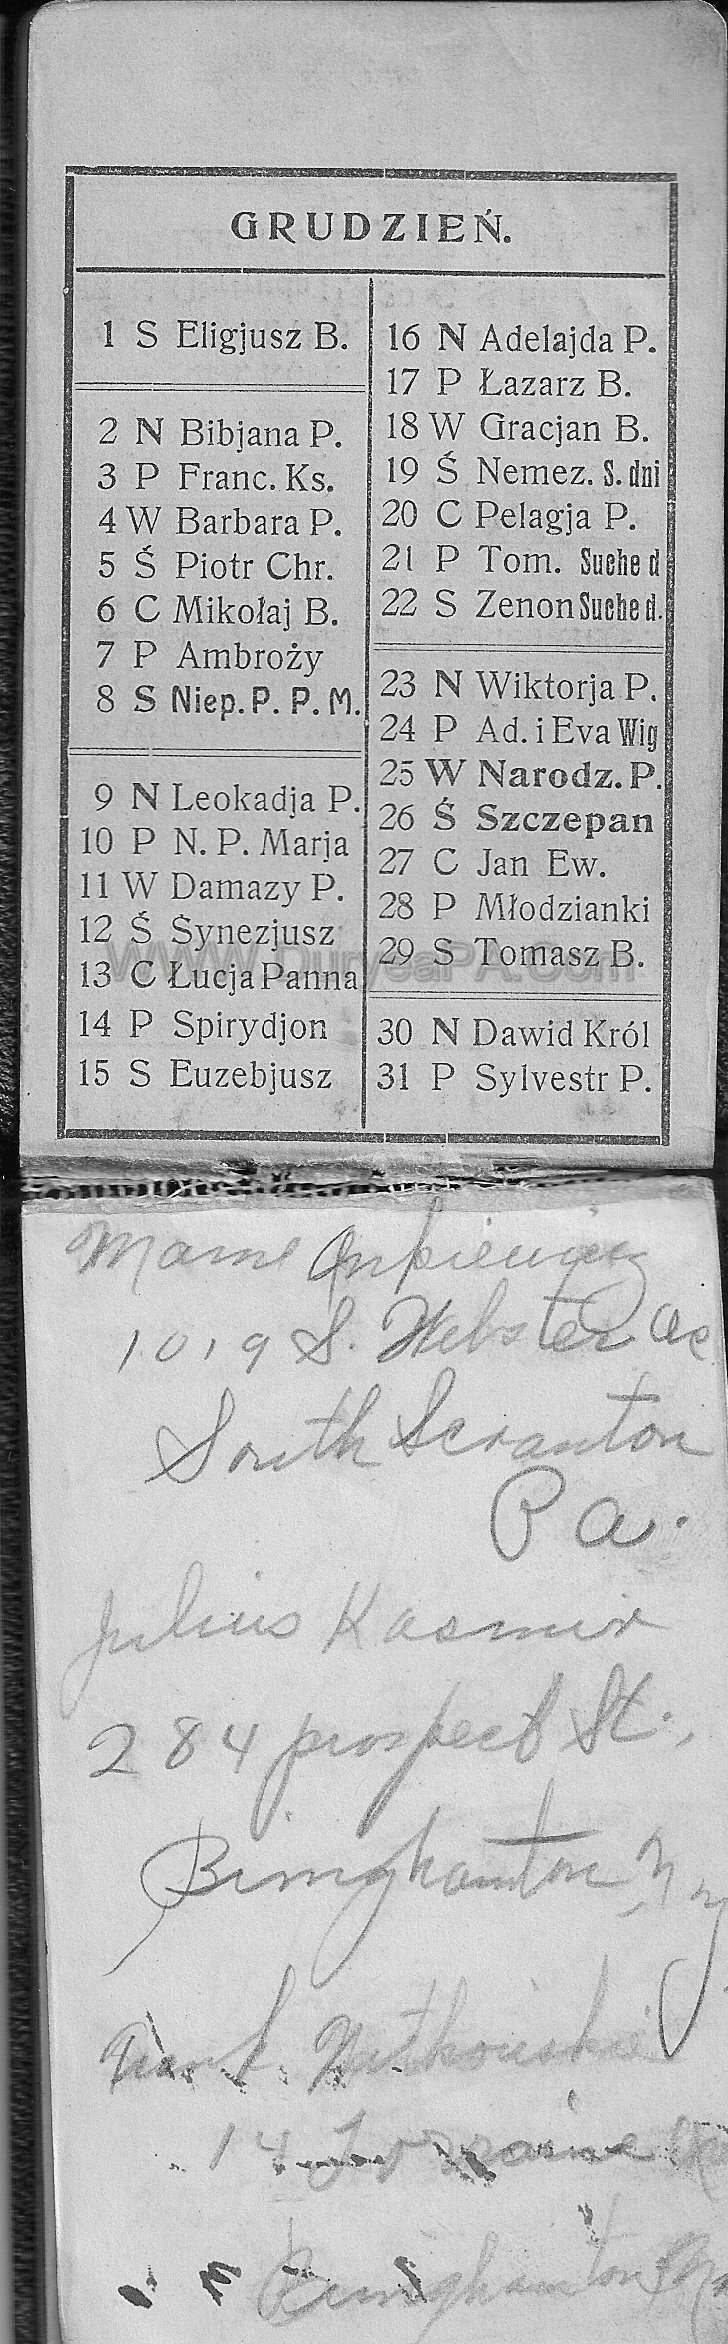 GRUDZIEŃ.
1 S Eligjusz B.
2 N Bibjana P.
3 P Franc. Ks.
4 W Barbara P.
5 Ś Piotr Chr.
6 C Mikołaj B.
7 P Ambroży
8 S Niep. P. P. M.
9 N Leokadja P.
10 P N. P. Marja
11 W Damazy P.
12 Ś Synezjusz
13 C Łucja Panna
14 P Spirydjon
15 S Euzebjusz
16 N Adelajda P.
17 P Łazarz B.
18 W Gracjan B.
19 Ś Nemez. S. dni
20 C Pelagja P.
21 P Tom. Suche d
22 S Zenon Suche d.
23 N Wiktorja P.
24 P Ad. i Eva Wig
25 W Narodz. P.
26 Ś Szczepan
27 C Jan Ew.
28 P Młodzianki
29 S Tomasz B.
30 N Dawid Król
31 P Sylvestr P.
www.DuryeaPA.com
Mame
1019 S. Webster
South Scranton
Pa.
Julius Kasmir
284 prospect St.,
Binghamton, N y
14 Lorraine
Binghamton